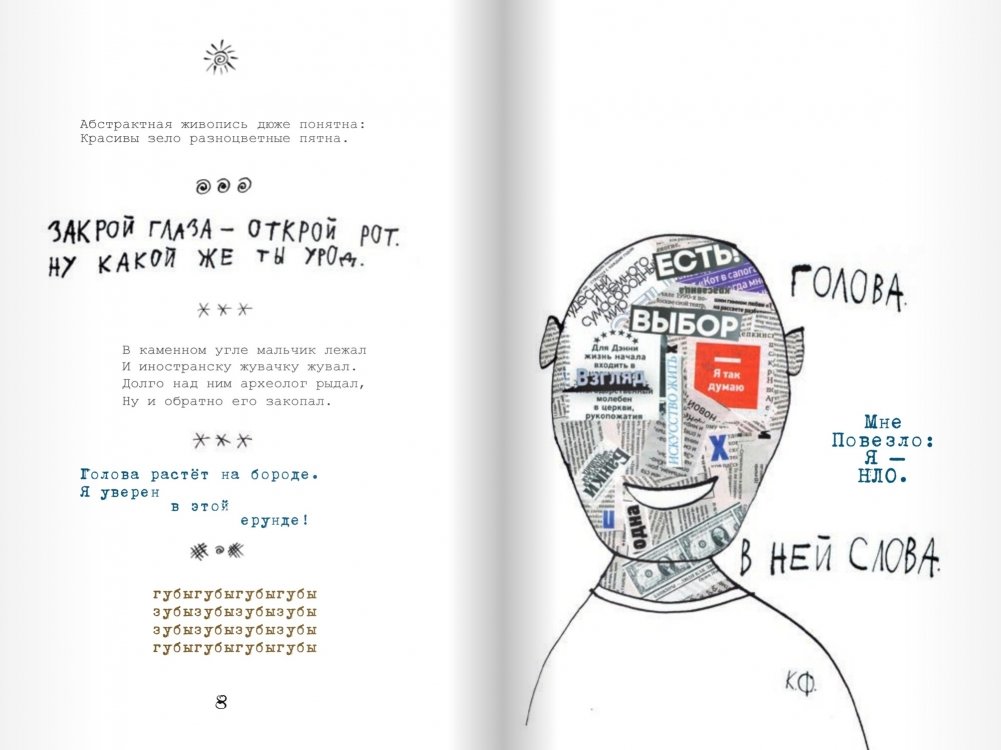 Абстрактная живопись дюже понятна:
Красивы зело разноцветные пятна.
ЗАКРОЙ ГЛАЗА – ОТКРОЙ РОТ.
НУ КАКОЙ ЖЕ ТЫ УРОД.
В каменном угле мальчик лежал
И иностранску жувачку жувал.
Долго над ним археолог рыдал,
Ну и обратно его закопал.
Голова растёт на бороде.
Я уверен
в этой
ерунде!
губыгубыгубыгубы
зубызубызубызубы
зубызубызубызубы
губыгубыгубыгубы
8
ГОЛОВА.
ЕСТЬ!
«Кот в сапог
ВЫБОР
Для Дэнни
жизнь начала
входить в
Взгляд
молебен
в церкви,
рукопожатия
ИСКУССТВО ЖИТЬ
Х
Я так
думаю
НОВОЙ
Х
Банки
одна
Мне
Повезло:
Я —
НЛО.
В НЕЙ СЛОВА.
К.Ф.